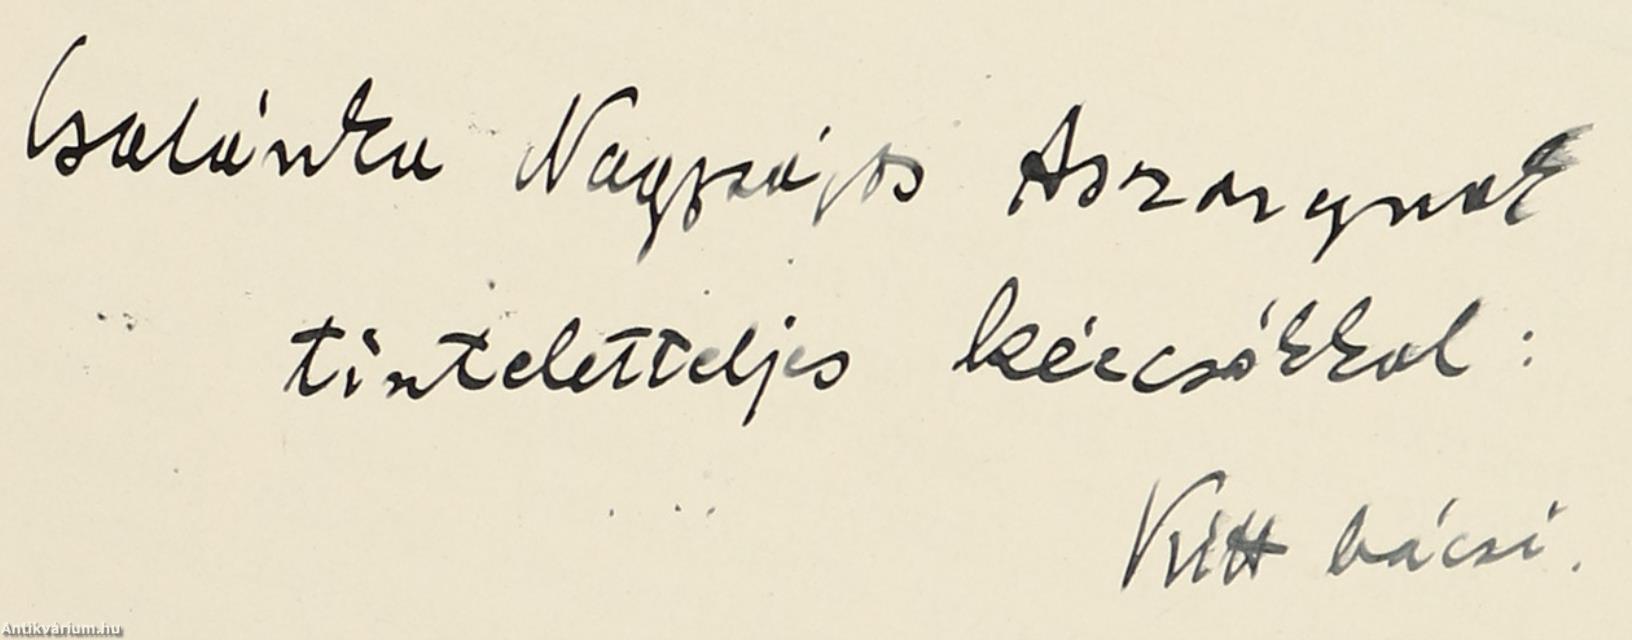 Csalánka Nagysájos Asszonynak
tiszteletteljes kézcsókkal:
Vitt bácsi.
Antikvárium.hu